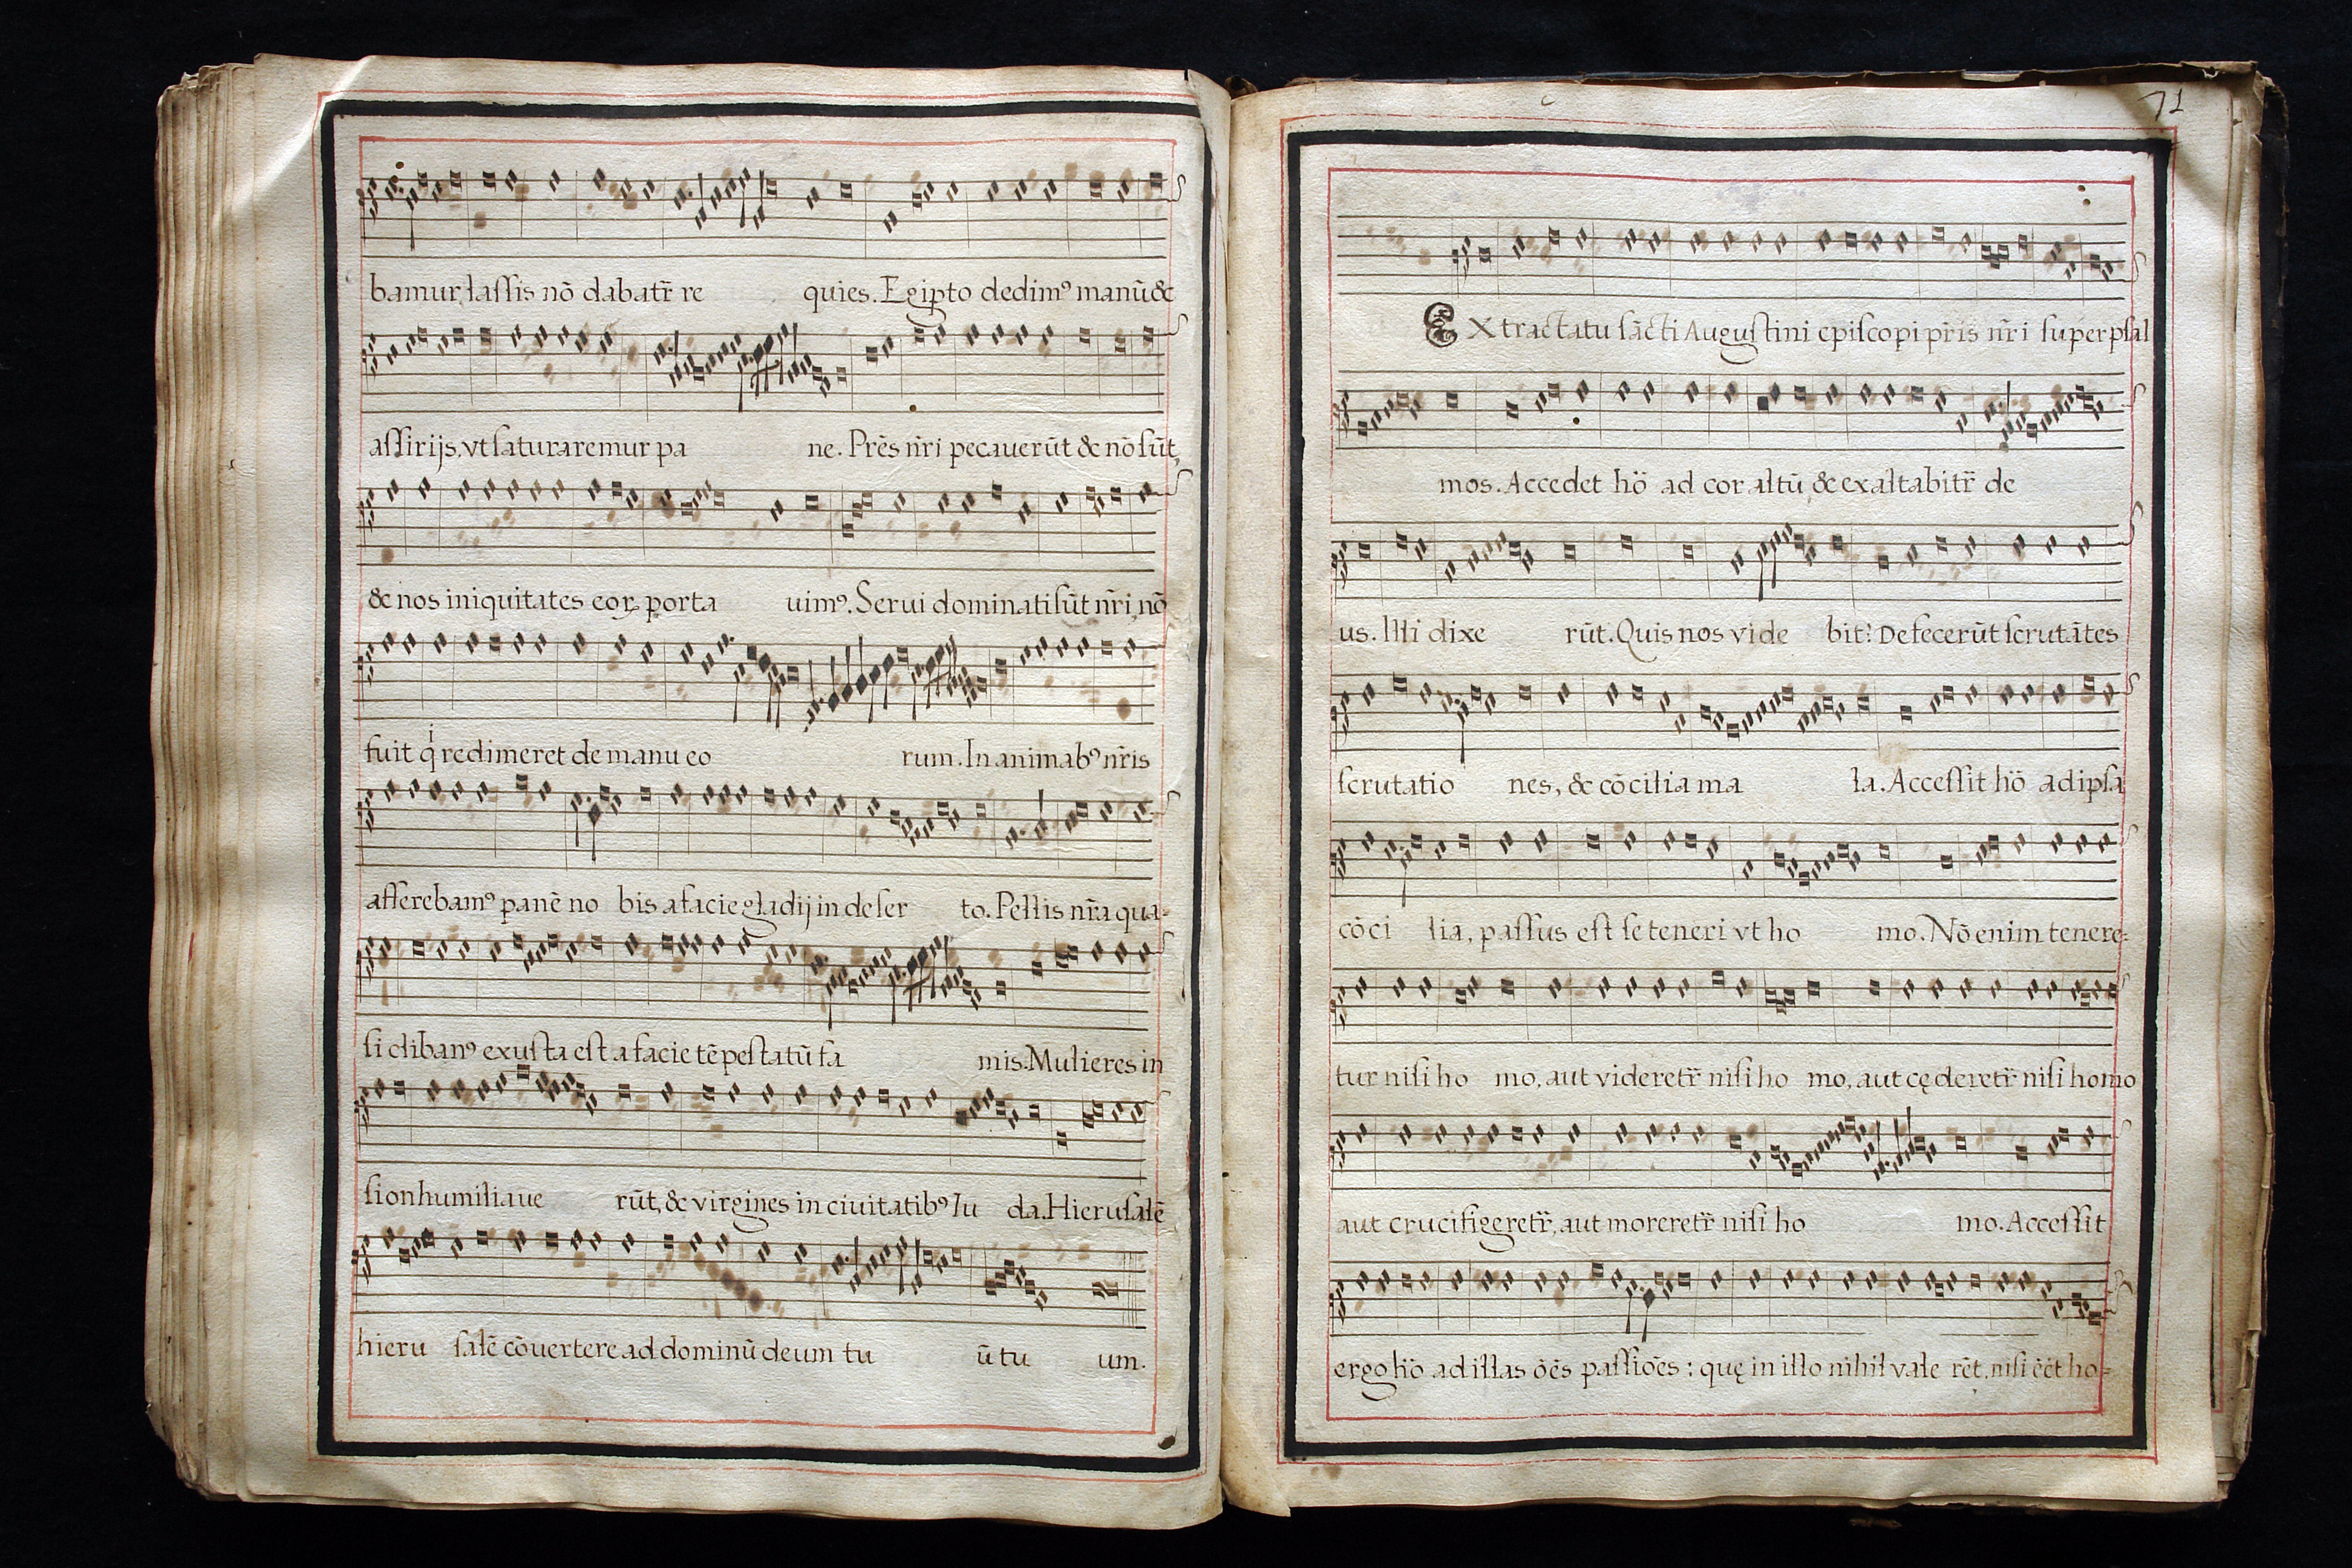 bamur, lassis nō dabatr̄ re quies. Egipto dedimꝰ manū &
assirijs, vt saturaremur pa ne. Prēs nr̄i pecauerūt & nō sūt,
& nos iniquitates eoꝝ porta uimꝰ. Serui dominati sūt nr̄i, nō
fuit qͥ redimeret de manu eo rum. In animabꝰ nr̄is
afferebamꝰ panē no bis a facie gladij in deser to. Pellis nr̄a qua-
si clibanꝰ exusta est a facie tēpestatū fa mis. Mulieres in
sion humiliaue rūt, & virgines in ciuitatibꝰ Iu da. Hierusalē
hieru salē cōuertere ad dominū deum tu ū tu um.
71
Ex tractatu sācti Augustini episcopi pr̄is nr̄i super psal
mos. Accedet hō ad cor altū, & exaltabitr̄ de
us. Illi dixe rūt. Quis nos vide bit? Defecerūt scrutātes
scrutatio nes, & cōcilia ma la. Accessit hō ad ipsa
cōci lia, passus est se teneri vt ho mo. Nō enim tenere-
tur nisi ho mo, aut videretr̄ nisi ho mo, aut cęderetr̄ nisi homo
aut crucifigeretr̄, aut moreretr̄ nisi ho mo. Accessit
ergo hō ad illas ōēs passiōēs: quę in illo nihil vale rēt, nisi ēēt ho-